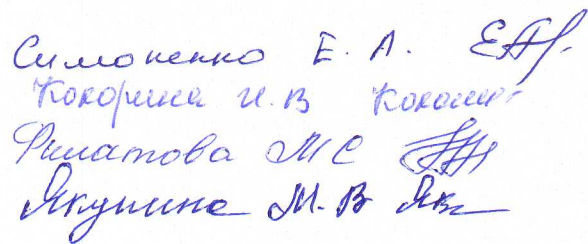 Симоненко Е. А.
Кокорина И. В
Филатова М С
Якунина М. В Як